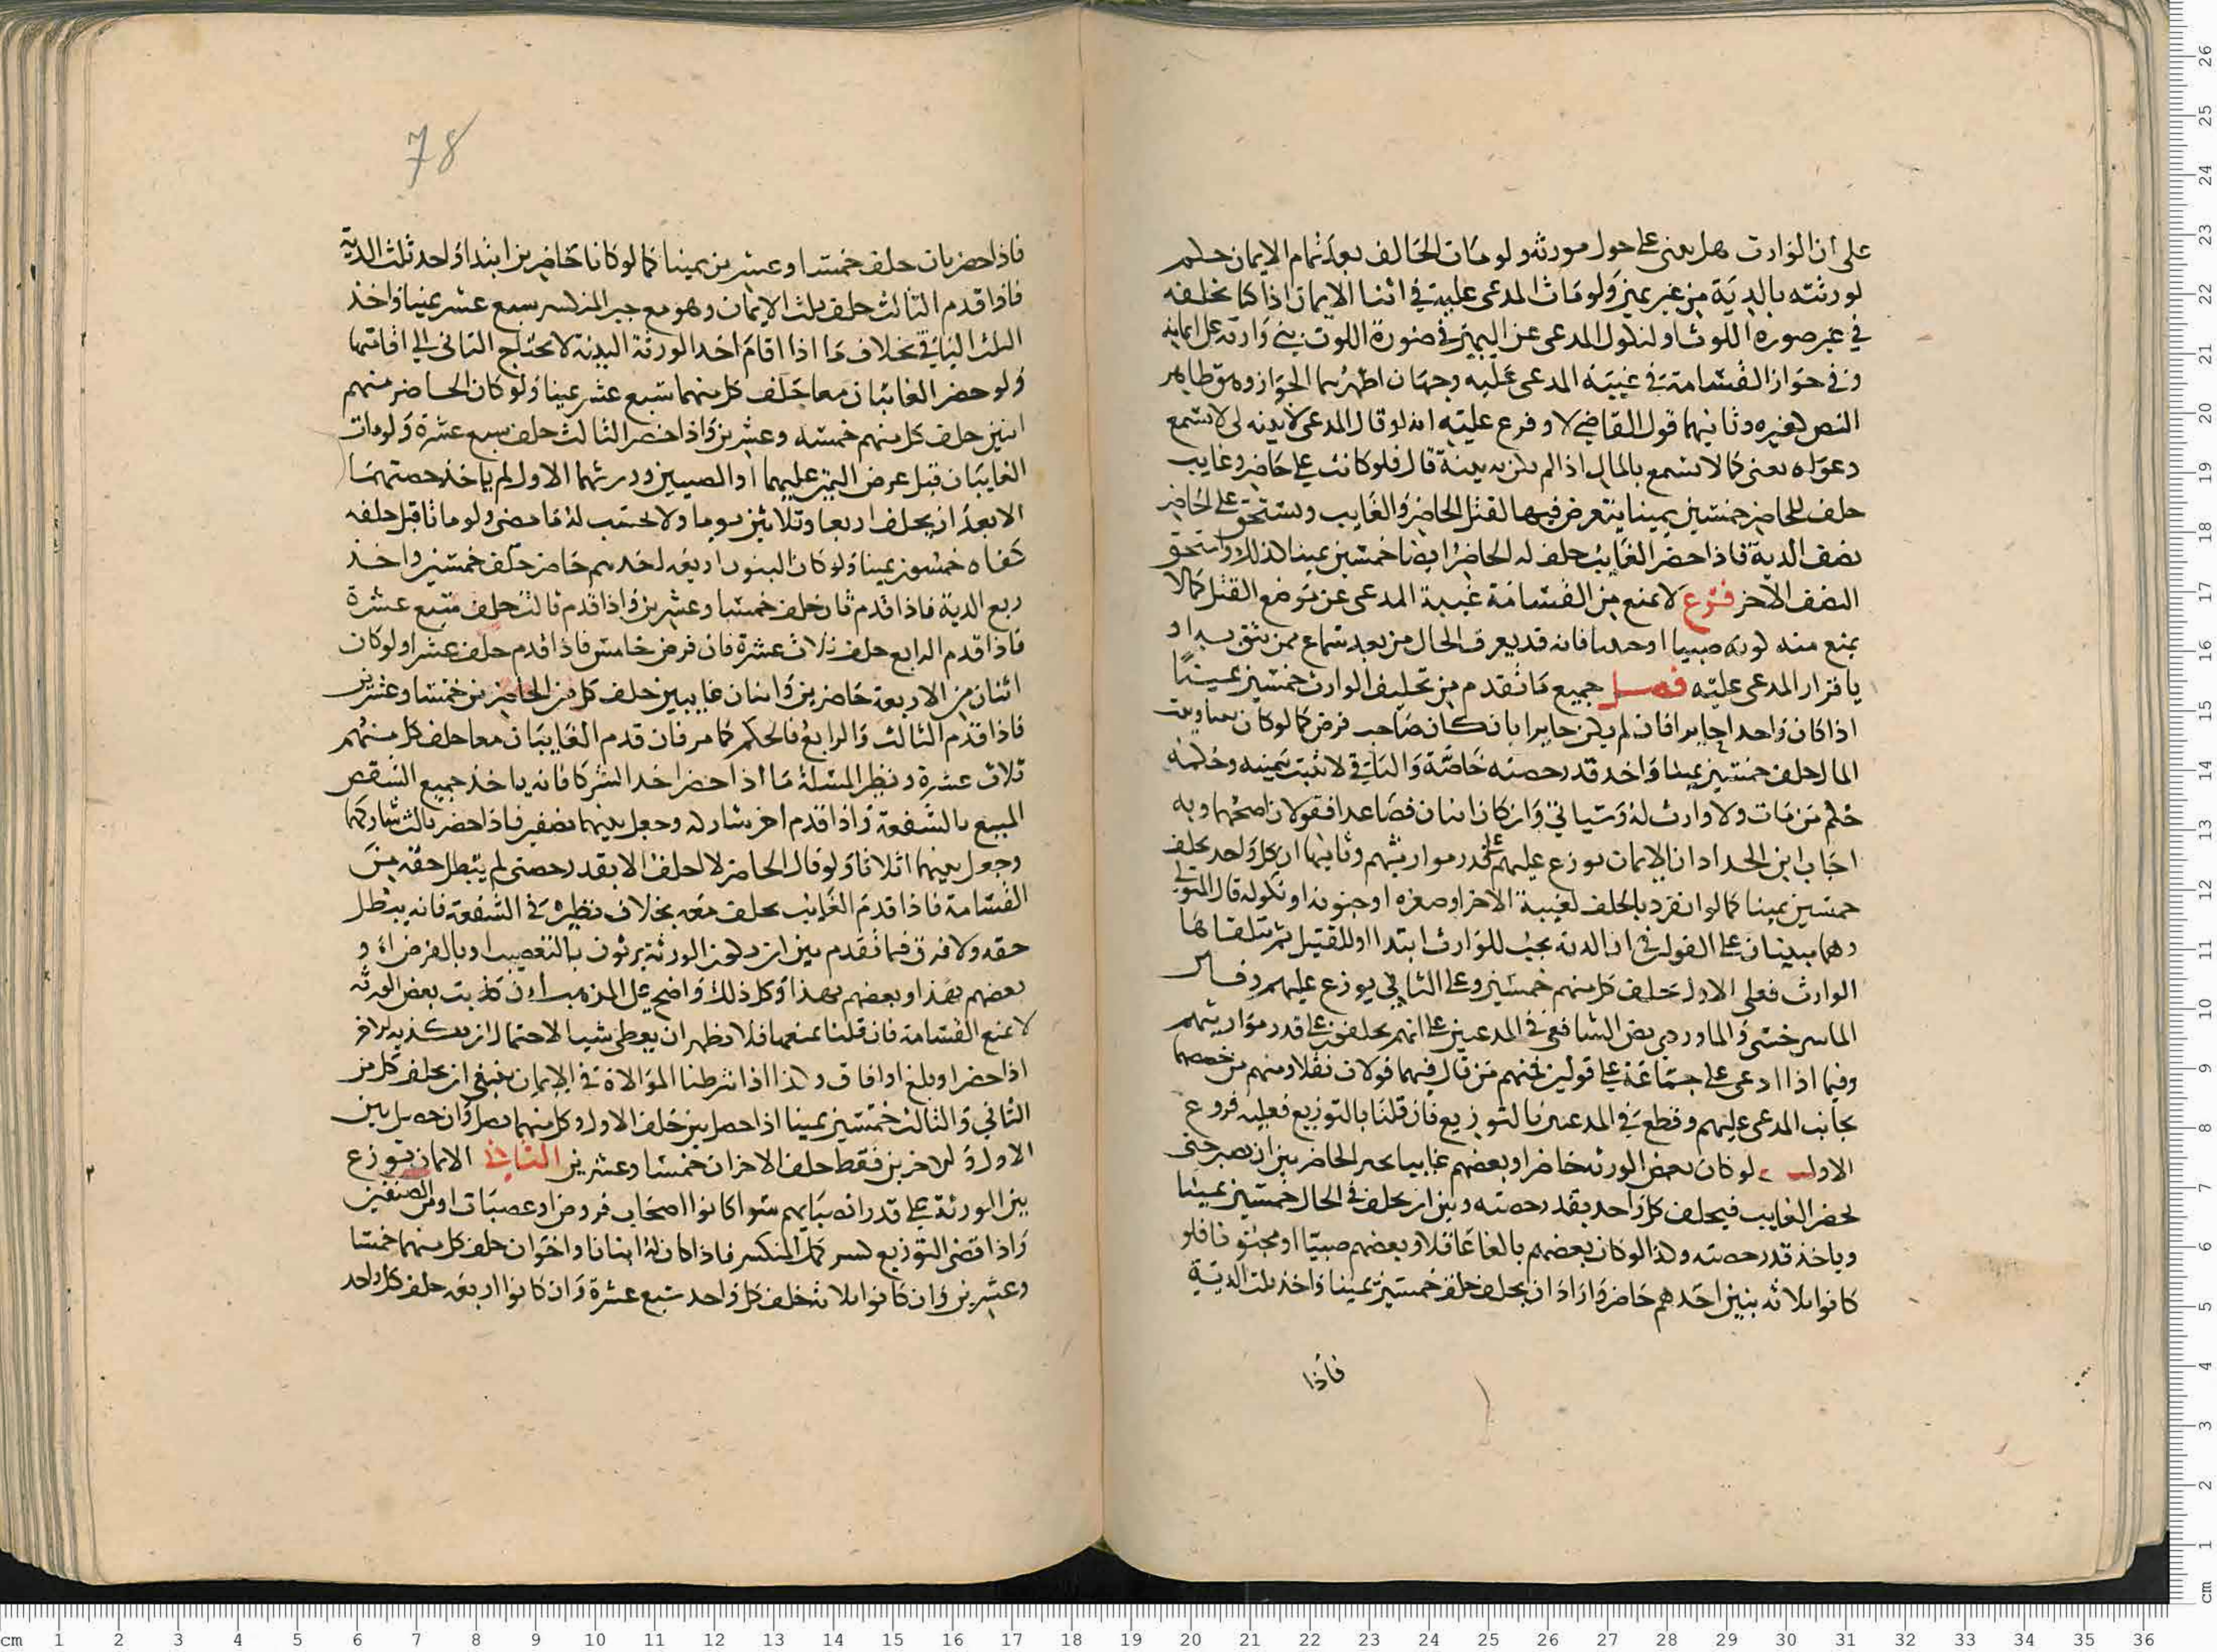 على ان الوارث هل يبنى على حول مورثه ولو مات الحالف بعد تمام الايمان حكم
لورثته بالدية من غير يمين ولو مات المدعى عليه في اثنا الايمان اذا كنا نحلفه
في غير صورة اللوث او لنكول المدعى عن اليمين في صورة اللوث بنى وارثه على ايمانه
وفي جواز القسامة في غيبة المدعى عليه وجهان اظهرهما الجواز وهو ظاهر
النص لغيره وثانيهما قول القاضي لا وفرع عليه انه لو قال المدعى لا بينة لى لا تسمع
دعواه يعنى كما لا تسمع بالمال اذا لم يكن به بينة قال فلو كانت على حاضر وغايب
حلف للحاضر خمسين يمينا يتعرض فيها لقتل الحاضر والغايب ويستحق على الحاضر
نصف الدية فاذا حضر الغايب حلف له الحاضر ايضا خمسين يمينا كذلك واستحق
النصف الاخر فروع لا يمنع من القسامة غيبة المدعى عن موضع القتل كما لا
يمنع منه كونه صبيا او حملا فانه قد يعرف الحال من بعد بسماع ممن يثق به او
باقرار المدعى عليه فصل جميع ما تقدم من تحليف الوارث خمسين يمينًا
اذا كان واحدا حايزا فان لم يكن حايزا بان كان صاحب فرض كما لو كان بنتا وبيت
المال حلف خمسين يمينا واخذ قدر حصته خاصة والباقي لا يثبت بيمينه وحكمه
حكم من مات ولا وارث له وسياتي وان كان اثنان فصاعدا فقولان اصحهما وبه
اجاب ابن الحداد ان الايمان توزع عليهم على قدر مواريثهم وثانيهما ان كل واحد يحلف
خمسين يمينا كما لو انفرد بالحلف لغيبة الاخر او صغره او جنونه او نكوله قال المتولي
وهما مبنيان على القول في ان الدية تجب للوارث ابتدا او للقتيل ثم يتلقاها
الوارث فعلى الاول حلف كل منهم خمسين وعلى الثاني يوزع عليهم وقال
الماسرخسى والماوردي نص الشافعي في المدعيين على انهم يحلفون على قدر مواريثهم
وفيما اذا ادعى على جماعة على قولين فمنهم من قال فيهما قولان نقلا ومنهم من خصهما
بجانب المدعى عليهم وقطع في المدعين بالتوزيع فان قلنا بالتوزيع فعليه فروع
الاول لو كان بعض الورثة حاضرا وبعضهم غايبا يخير الحاضر بين ان يصبر حتى
يحضر الغايب فيحلف كل واحد بقدر حصته وبين ان يحلف في الحال خمسين يمينا
وياخذ قدر حصته وكذا لو كان بعضهم بالغا عاقلا وبعضهم صبيا او مجنونا فلو
كانوا ثلاثه بنين احدهم حاضر واراد ان يحلف حلف خمسين يمينا واخذ ثلث الدية
فاذا
78
فاذا حضر ثان حلف خمسا وعشرين يمينا كما لو كانا حاضرين ابتدا واخذ ثلث الدية
فاذا قدم الثالث حلف ثلث الايمان وهو مع جبر المنكسر سبع عشر يمينا واخذ
الثلث الباقي بخلاف ما اذا اقام احد الورثة البينة لا يحتاج الثاني الى اقامتها
ولو حضر الغائبان معا حلف كل منهما سبع عشر يمينا ولو كان الحاضر منهم
اثنين حلف كل منهم خمسه وعشرين واذا حضر الثالث حلف سبع عشرة ولو مات
الغايبان قبل عرض اليمين عليهما او الصبيين وورثهما الاول لم ياخذ حصتهما
الا بعد ان يحلف اربعا وثلاثين يوما ولا يحسب له ما مضى ولو ماتا قبل حلفه
كفاه خمسون يمينا ولو كان البنون اربعه احدهم حاضر حلف خمسين واخذ
ربع الدية فاذا قدم ثان حلف خمسا وعشرين واذا قدم ثالث حلف سبع عشرة
فاذا قدم الرابع حلف ثلاث عشرة فان فرض خامس فاذا قدم حلف عشرا ولو كان
اثنان من الاربعة حاضرين واثنان غايبين حلف كل من الحاضرين خمسا وعشرين
فاذا قدم الثالث والرابع فالحكم كما مر فان قدم الغايبان معا حلف كل منهم
ثلاث عشرة ونظير المسئلة ما اذا حضر احد الشركا فانه ياخذ جميع الشقص
المبيع بالشفعة واذا قدم اخر شاركه وجعل بينهما نصفين فاذا حضر ثالث شاركهما
وجعل بينهم اثلاثا ولو قال الحاضر لا احلف الا بقدر حصتي لم يبطل حقه من
القسامة فاذا قدم الغايب حلف معه بخلاف نظيره في الشفعة فانه يبطل
حقه ولا فرق فيما تقدم بين ان يكون الورثة يرثون بالتعصيب او بالفرض او
بعضهم بهذا وبعضهم بهذا وكل ذلك واضح على المذهب ان تكذيب بعض الورثة
لا يمنع القسامة فان قلنا يمنعها فالاظهر ان يعطى شيا لاحتمال ان يكذبه الاخر
اذا حضر او بلغ او افاق وكذا اذا شرطنا الموالاة في الايمان فينبغى ان يحلف كل من
الثاني والثالث خمسين يمينا اذا حصل بين حلف الاول وكل منهما فصل وان حصل بين
الاول والاخرين فقط حلف الاخران خمسا وعشرين الثاني الايمان توزع
بين الورثة على قدر انصبايهم سوا كانوا اصحاب فروض او عصبات او من الصنفين
واذا اقتضى التوزيع كسر كمل المنكسر فاذا كان له ابنان او اخوان حلف كل منهما خمسا
وعشرين وان كانوا ثلاثة حلف كل واحد سبع عشرة وان كانوا اربعه حلف كل واحد